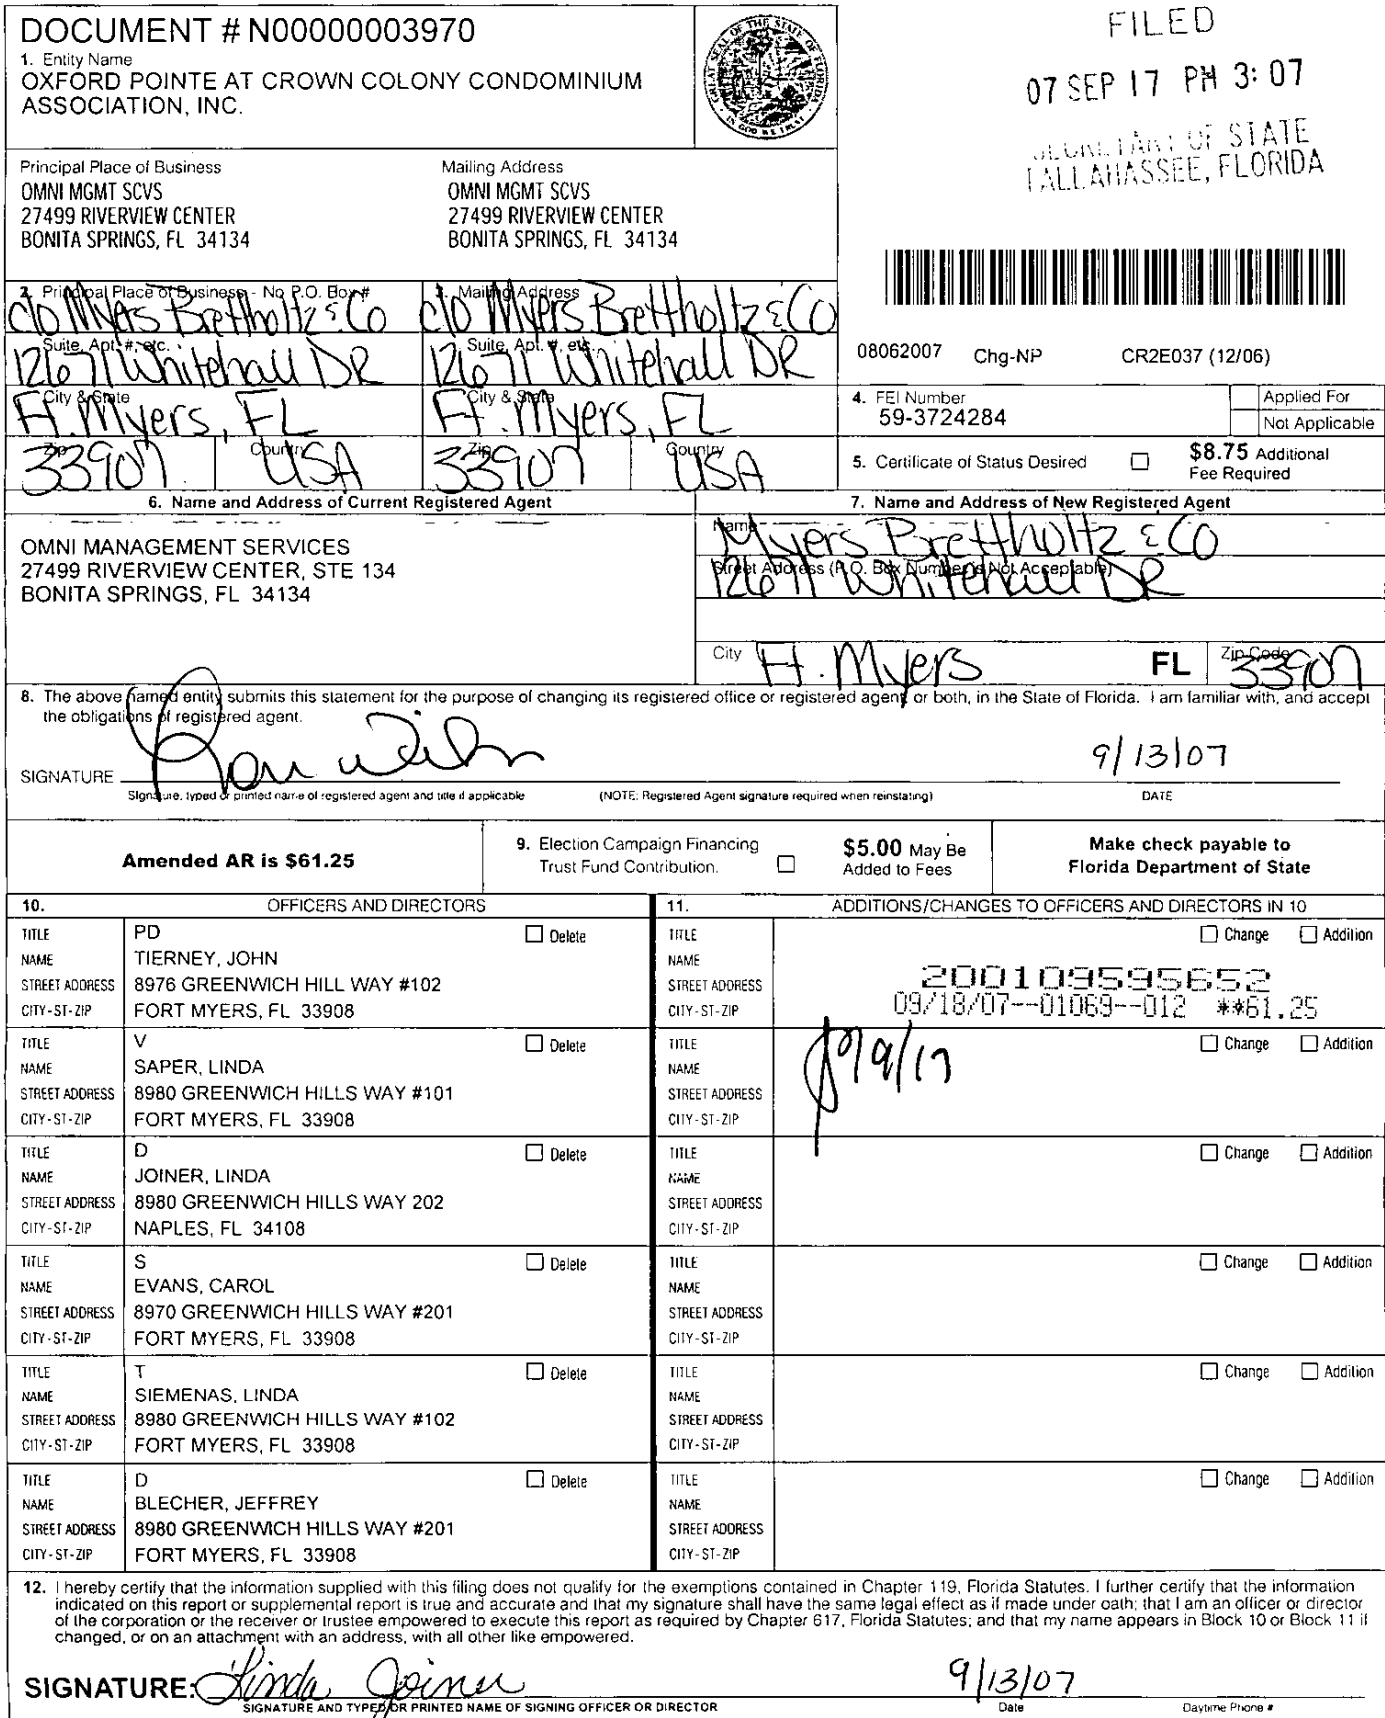 DOCUMENT # N00000003970
1. Entity Name
OXFORD POINTE AT CROWN COLONY CONDOMINIUM
ASSOCIATION, INC.
GREAT SEAL OF THE STATE OF FLORIDA
IN GOD WE TRUST
FILED
07 SEP 17 PM 3:07
SECRETARY OF STATE
TALLAHASSEE, FLORIDA
Principal Place of Business
OMNI MGMT SCVS
27499 RIVERVIEW CENTER
BONITA SPRINGS, FL 34134
Mailing Address
OMNI MGMT SCVS
27499 RIVERVIEW CENTER
BONITA SPRINGS, FL 34134
2. Principal Place of Business - No P.O. Box #
c/o Myers Brettholtz & Co
Suite, Apt. #, etc.
12671 Whitehall DR
City & State
Ft. Myers, FL
Zip
33907
Country
USA
3. Mailing Address
c/o Myers Brettholtz & Co
Suite, Apt. #, etc.
12671 Whitehall DR
City & State
Ft. Myers, FL
Zip
33907
Country
USA
08062007 Chg-NP CR2E037 (12/06)
4. FEI Number
59-3724284
Applied For
Not Applicable
5. Certificate of Status Desired
$8.75 Additional
Fee Required
6. Name and Address of Current Registered Agent
OMNI MANAGEMENT SERVICES
27499 RIVERVIEW CENTER, STE 134
BONITA SPRINGS, FL 34134
7. Name and Address of New Registered Agent
Name
Myers Brettholtz & Co
Street Address (P.O. Box Number is Not Acceptable)
12671 Whitehall DR
City Ft. Myers FL Zip Code 33907
8. The above named entity submits this statement for the purpose of changing its registered office or registered agent, or both, in the State of Florida. I am familiar with, and accept
the obligations of registered agent.
SIGNATURE 9/13/07
Signature, typed or printed name of registered agent and title if applicable (NOTE: Registered Agent signature required when reinstating) DATE
Amended AR is $61.25
9. Election Campaign Financing
Trust Fund Contribution.
$5.00 May Be
Added to Fees
Make check payable to
Florida Department of State
10. OFFICERS AND DIRECTORS
11. ADDITIONS/CHANGES TO OFFICERS AND DIRECTORS IN 10
TITLE PD Delete
NAME TIERNEY, JOHN
STREET ADDRESS 8976 GREENWICH HILL WAY #102
CITY-ST-ZIP FORT MYERS, FL 33908
TITLE Change Addition
NAME
STREET ADDRESS 200109595652
CITY-ST-ZIP 09/18/07--01069--012 **61.25
TITLE V Delete
NAME SAPER, LINDA
STREET ADDRESS 8980 GREENWICH HILLS WAY #101
CITY-ST-ZIP FORT MYERS, FL 33908
TITLE Change Addition
NAME 9/17
STREET ADDRESS
CITY-ST-ZIP
TITLE D Delete
NAME JOINER, LINDA
STREET ADDRESS 8980 GREENWICH HILLS WAY 202
CITY-ST-ZIP NAPLES, FL 34108
TITLE Change Addition
NAME
STREET ADDRESS
CITY-ST-ZIP
TITLE S Delete
NAME EVANS, CAROL
STREET ADDRESS 8970 GREENWICH HILLS WAY #201
CITY-ST-ZIP FORT MYERS, FL 33908
TITLE Change Addition
NAME
STREET ADDRESS
CITY-ST-ZIP
TITLE T Delete
NAME SIEMENAS, LINDA
STREET ADDRESS 8980 GREENWICH HILLS WAY #102
CITY-ST-ZIP FORT MYERS, FL 33908
TITLE Change Addition
NAME
STREET ADDRESS
CITY-ST-ZIP
TITLE D Delete
NAME BLECHER, JEFFREY
STREET ADDRESS 8980 GREENWICH HILLS WAY #201
CITY-ST-ZIP FORT MYERS, FL 33908
TITLE Change Addition
NAME
STREET ADDRESS
CITY-ST-ZIP
12. I hereby certify that the information supplied with this filing does not qualify for the exemptions contained in Chapter 119, Florida Statutes. I further certify that the information
indicated on this report or supplemental report is true and accurate and that my signature shall have the same legal effect as if made under oath; that I am an officer or director
of the corporation or the receiver or trustee empowered to execute this report as required by Chapter 617, Florida Statutes; and that my name appears in Block 10 or Block 11 if
changed, or on an attachment with an address, with all other like empowered.
SIGNATURE: Linda Joiner 9/13/07
SIGNATURE AND TYPED OR PRINTED NAME OF SIGNING OFFICER OR DIRECTOR Date Daytime Phone #